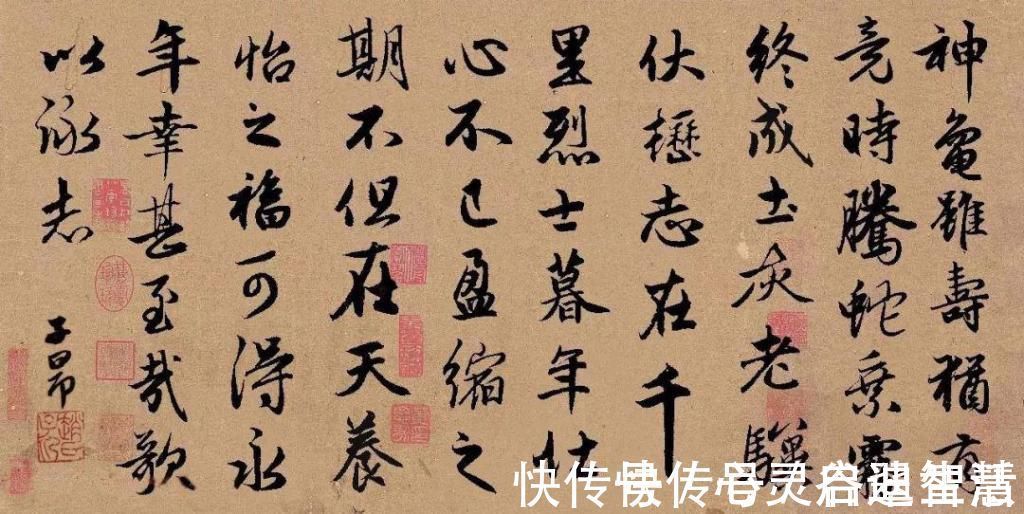 神龜雖壽猶有
竟時騰蛇乘霧
終成土灰老驥
伏櫪志在千
里烈士暮年壯
心不已盈縮之
期不但在天養
怡之福可得永
年幸甚至哉歌
以詠志
子昂